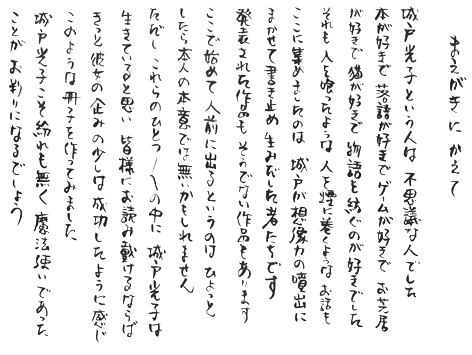 まえがきにかえて
城戸光子という人は 不思議な人でした
本が好きで 落語が好きで ゲームが好きで お芝居
が好きで 猫が好きで 物語を紡ぐのが好きでした
それも 人を喰ったような 人を煙に巻くような お話を
ここに集めましたのは 城戸が想像力の噴出に
まかせて書き止め 生みだした者たちです
発表された作品も そうでない作品もあります
ここで始めて 人前に出るというのは ひょっと
したら本人の本意では無いかもしれません
ただし これらのひとつ一つの中に 城戸光子は
生きていると思い 皆様にお読み戴けるならば
きっと彼女の企みの少しは成功したように感じ
このような冊子を作ってみました
城戸光子こそ紛れも無く 魔法使いであった
ことがお判りになるでしょう